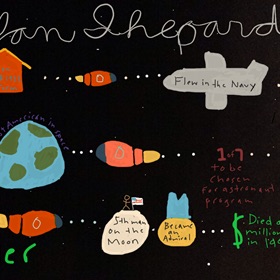 lan Shepard
Flew in the Navy
American in space
1 of 7
to be
chosen
for astronaut
program
5th man
on the
Moon
Became
an
Admiral
$ Died a
million
in 19
er